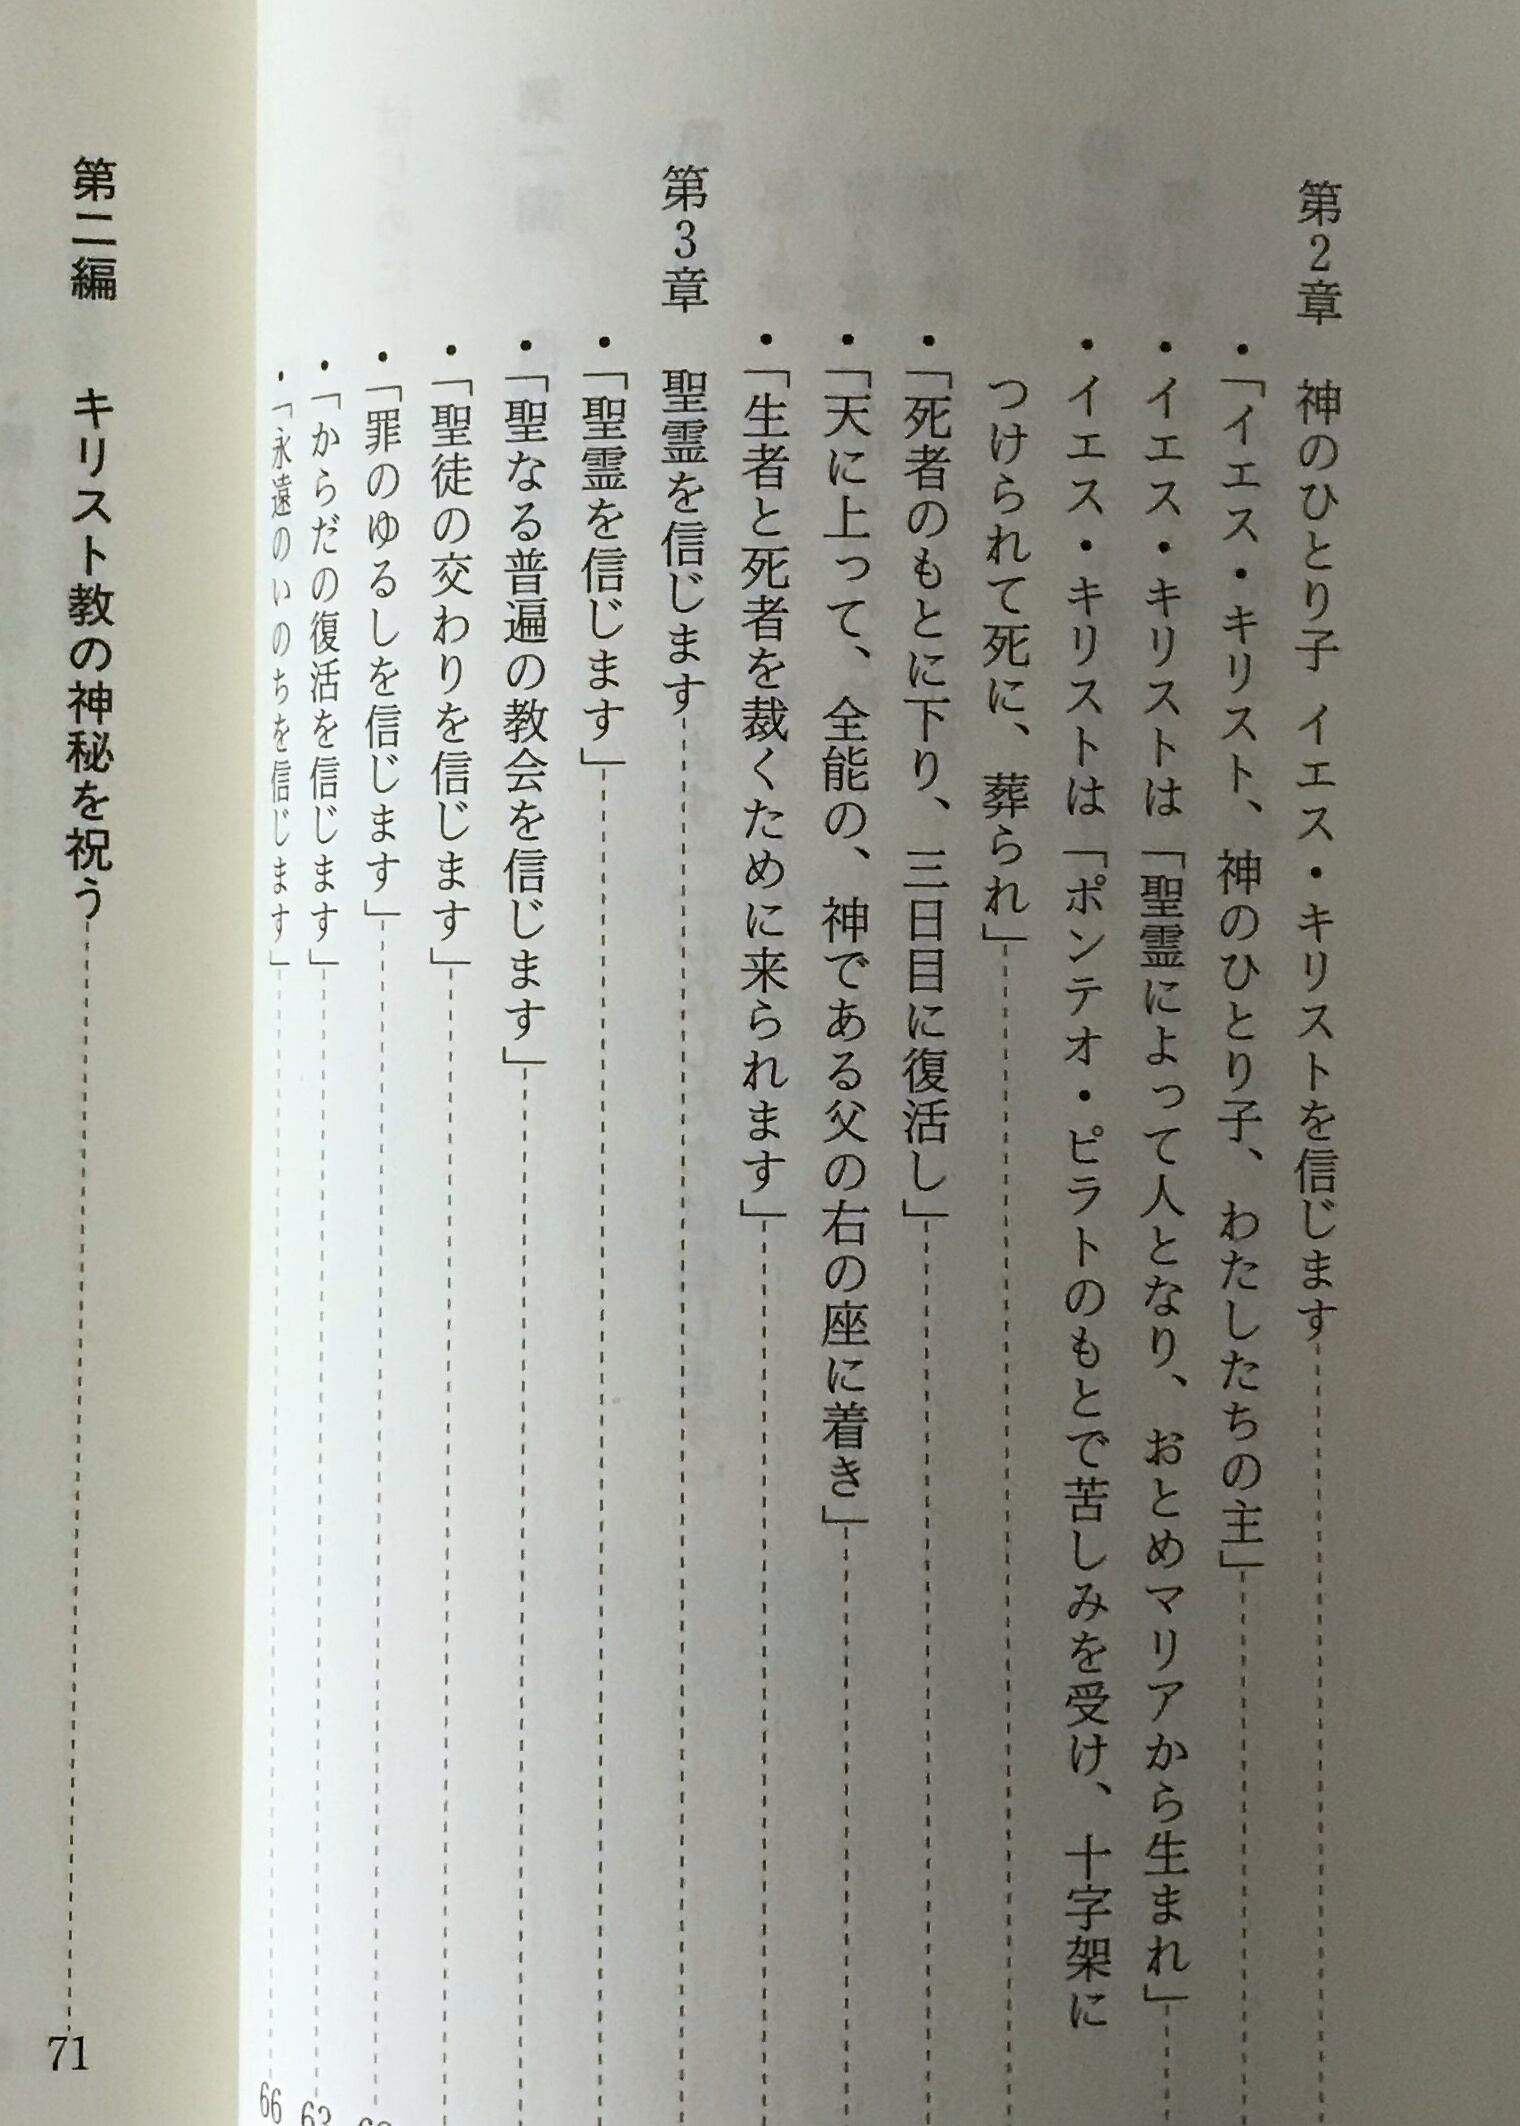 第2章 神のひとり子 イエス・キリストを信じます
・「イエス・キリスト、神のひとり子、わたしたちの主」
・イエス・キリストは「聖霊によって人となり、おとめマリアから生まれ」
・イエス・キリストは「ポンテオ・ピラトのもとで苦しみを受け、十字架に
つけられて死に、葬られ」
・「死者のもとに下り、三日目に復活し」
・「天に上って、全能の、神である父の右の座に着き」
・「生者と死者を裁くために来られます」
第3章 聖霊を信じます
・「聖霊を信じます」
・「聖なる普遍の教会を信じます」
・「聖徒の交わりを信じます」
・「罪のゆるしを信じます」
・「からだの復活を信じます」 63
・「永遠のいのちを信じます」 66
第二編 キリスト教の神秘を祝う 71